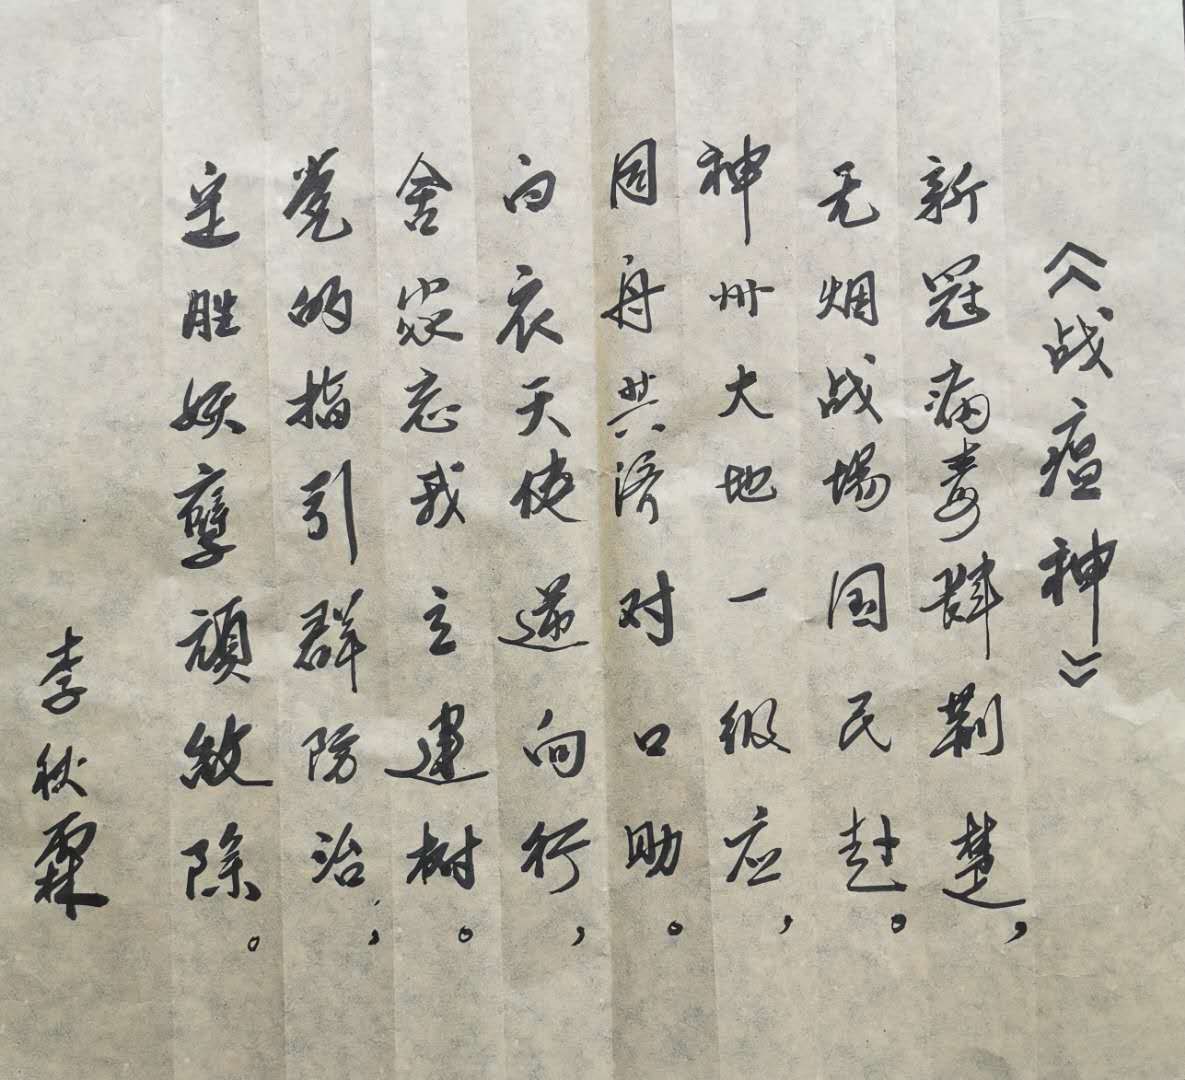 《战瘟神》
新冠病毒肆荆楚，
无烟战场国民赴。
神州大地一级应，
同舟共济对口助。
白衣天使逆向行，
舍家忘我立建树。
党的指引群防治，
定胜妖孽顽敌除。
李秋霖